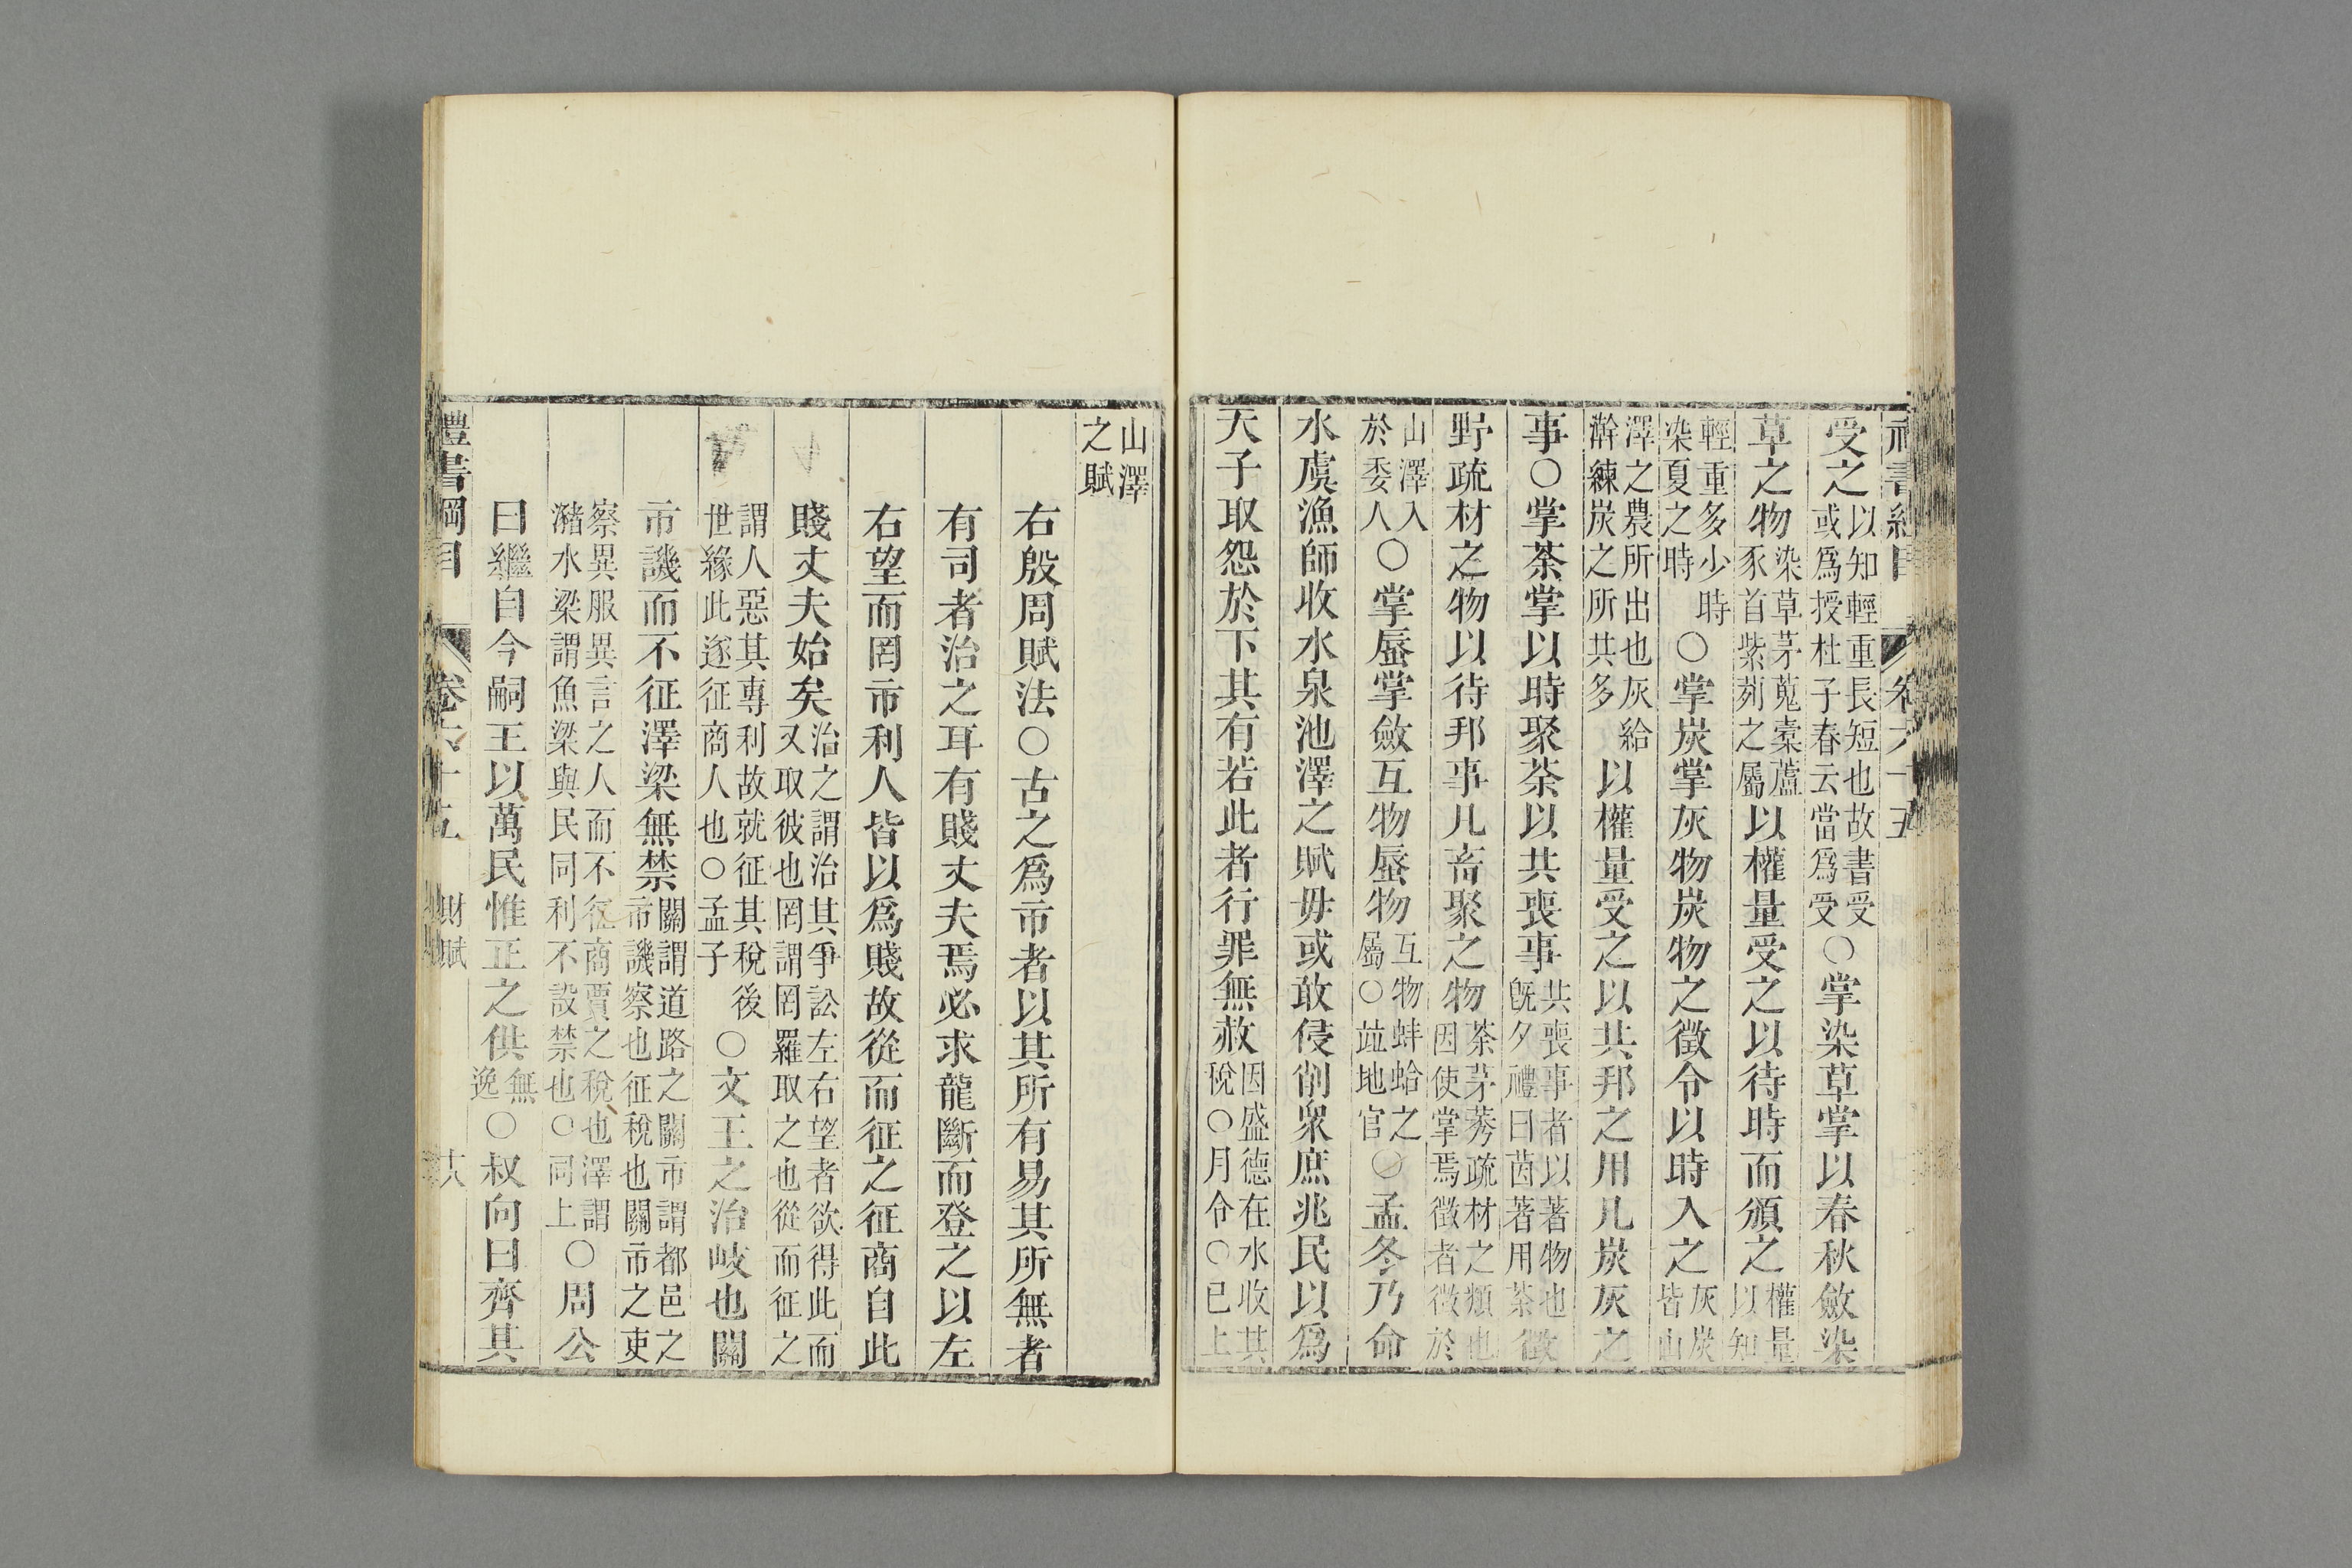 受之以知輕重長短也故書受或爲授杜子春云當爲受○掌染草掌以春秋斂染
草之物染草茅蒐橐蘆豕首紫茢之屬以權量受之以待時而頒之權量以知
輕重多少時染夏之時○掌炭掌灰物炭物之徵令以時入之灰炭皆山
澤之農所出也灰給澣練炭之所共多以權量受之以共邦之用凡炭灰之
事○掌荼掌以時聚荼以共喪事共喪事者以著物也旣夕禮曰茵著用荼徵
野疏材之物以待邦事凡畜聚之物荼茅莠疏材之類也因使掌焉徵者徵於
山澤入於委人○掌蜃掌斂互物蜃物互物蚌蛤之屬○竝地官○孟冬乃命
水虞漁師收水泉池澤之賦毋或敢侵削衆庶兆民以爲
天子取怨於下其有若此者行罪無赦因盛德在水收其稅○月令○已上
山澤之賦
右殷周賦法○古之爲市者以其所有易其所無者
有司者治之耳有賤丈夫焉必求龍斷而登之以左
右望而罔市利人皆以爲賤故從而征之征商自此
賤丈夫始矣治之謂治其爭訟左右望者欲得此而又取彼也罔謂罔羅取之也從而征之
謂人惡其專利故就征其稅後世緣此逐征商人也○孟子○文王之治岐也關
市譏而不征澤梁無禁關謂道路之關市謂都邑之市譏察也征稅也關市之吏
察異服異言之人而不征商賈之稅也澤謂瀦水梁謂魚梁與民同利不設禁也○同上○周公
曰繼自今嗣王以萬民惟正之供無逸○叔向曰齊其
禮書綱目 卷六十五 財賦 十八